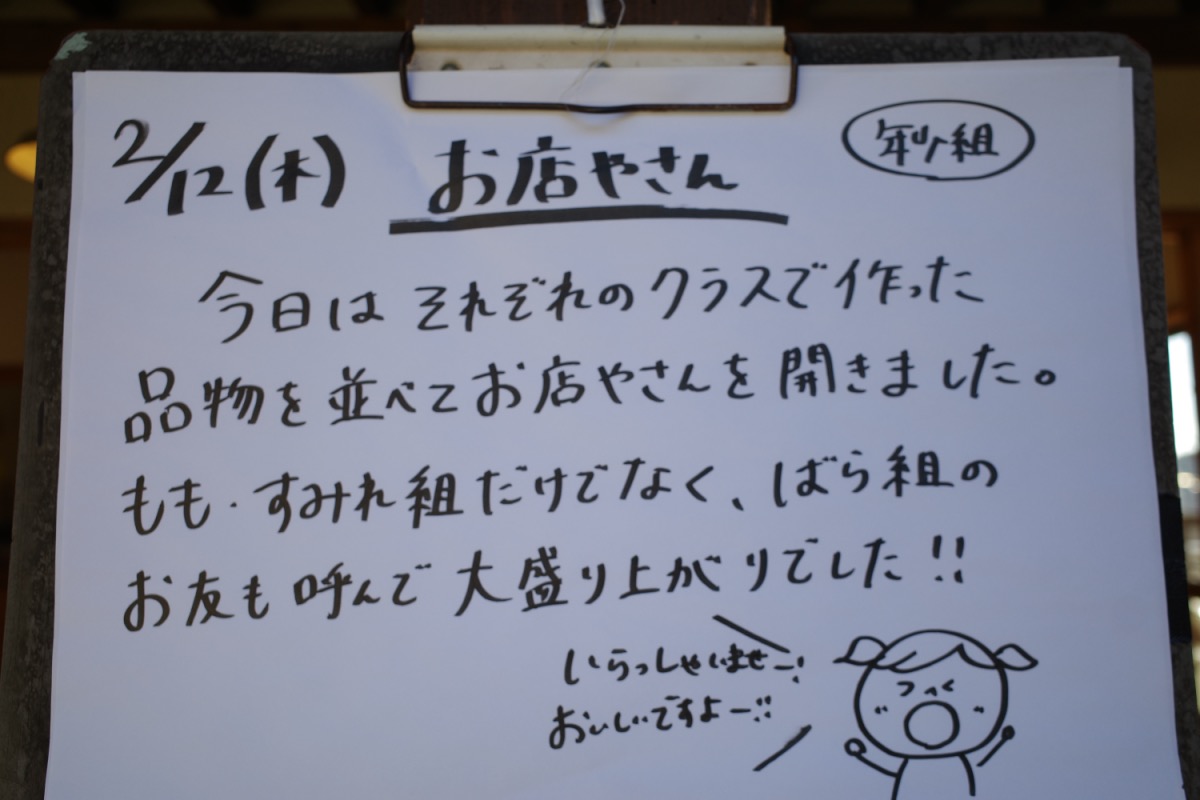 2/12(木) お店やさん 年少組
今日はそれぞれのクラスで作った
品物を並べてお店やさんを開きました。
もも・すみれ組だけでなく、ばら組の
お友も呼んで大盛り上がりでした!!
いらっしゃいませー!
おいしいですよー!!